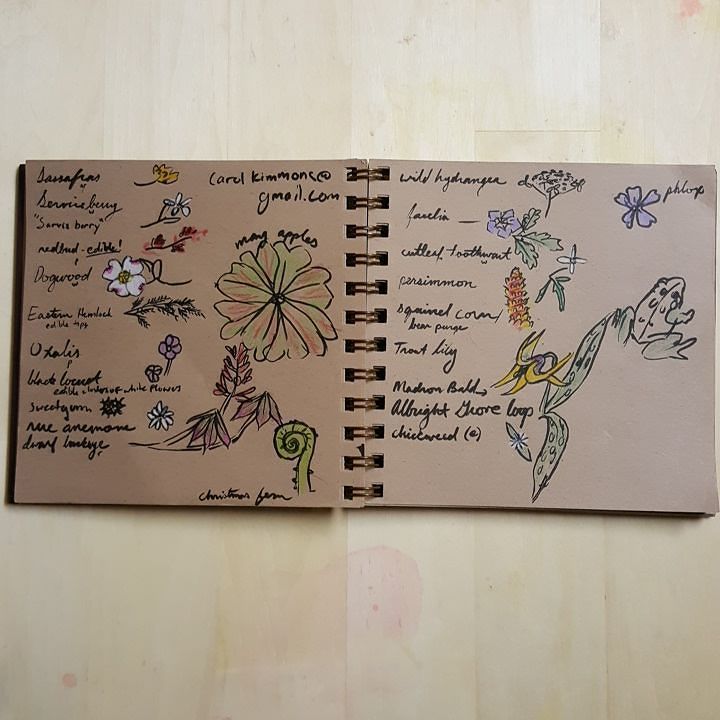 Sassafras
Serviceberry
"Sarvis berry"
redbud - edible!
Dogwood
Eastern Hemlock
edible tips
Oxalis
black locust
edible clusters of white flowers
sweetgum
rue anemone
dwarf buckeye
carol kimmons@
gmail.com
may apples
christmas fern
wild hydrangea
phlox
facelia —
cutleaf toothwort
persimmon
squirrel corn/
bear purge
Trout lily
Madron Bald,
Albright Grove loop
chickweed (e)